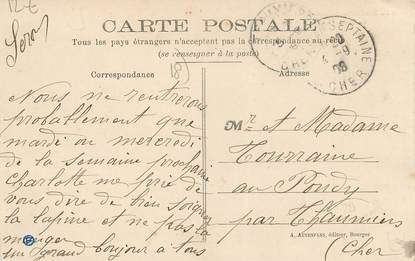 12 €
CARTE POSTALE
Tous les pays étrangers n'acceptent pas la correspondance au recto
(se renseigner à la poste)
Correspondance
Adresse
CHER
Nous ne rentrerons
probablement que
mardi ou mercredi
de la semaine prochaine
Charlotte me prie de
vous dire de bien soigner
la lapine et ne pas la
manger
un grand bonjour à tous
Mr et Madame
Tourraine
au Pondy
par Thaumiers
(Cher)
A. AUXENFANS, éditeur, Bourges